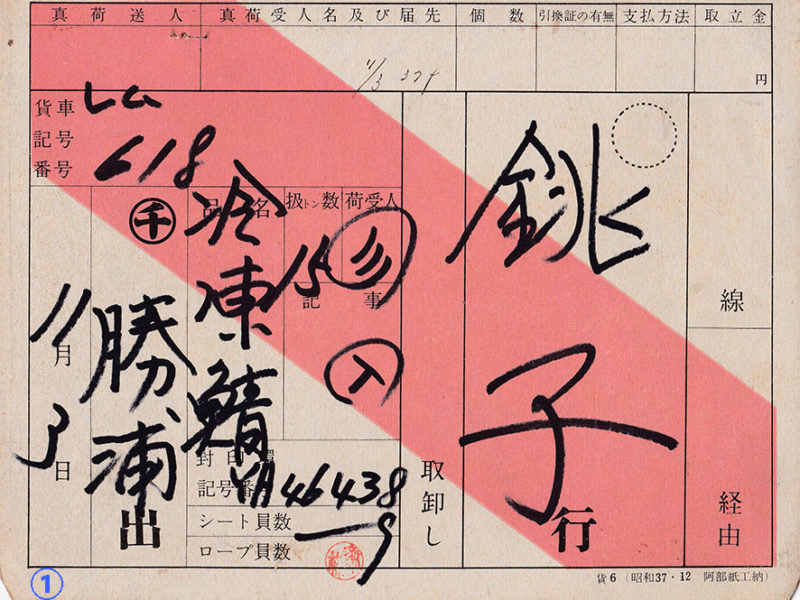 真荷送人 真荷受人名及び届先 個数 引換証の有無 支払方法 取立金
円
貨車記号番号
レム
618
千
勝浦
出
11月
3日
品名
冷凍鯖
扱トン数
15
荷受人
記事
封印環記号番号
46438
シート員数
ロープ員数
取卸し
銚子
行
線
経由
1
貨6(昭和37・12 阿部紙工納)